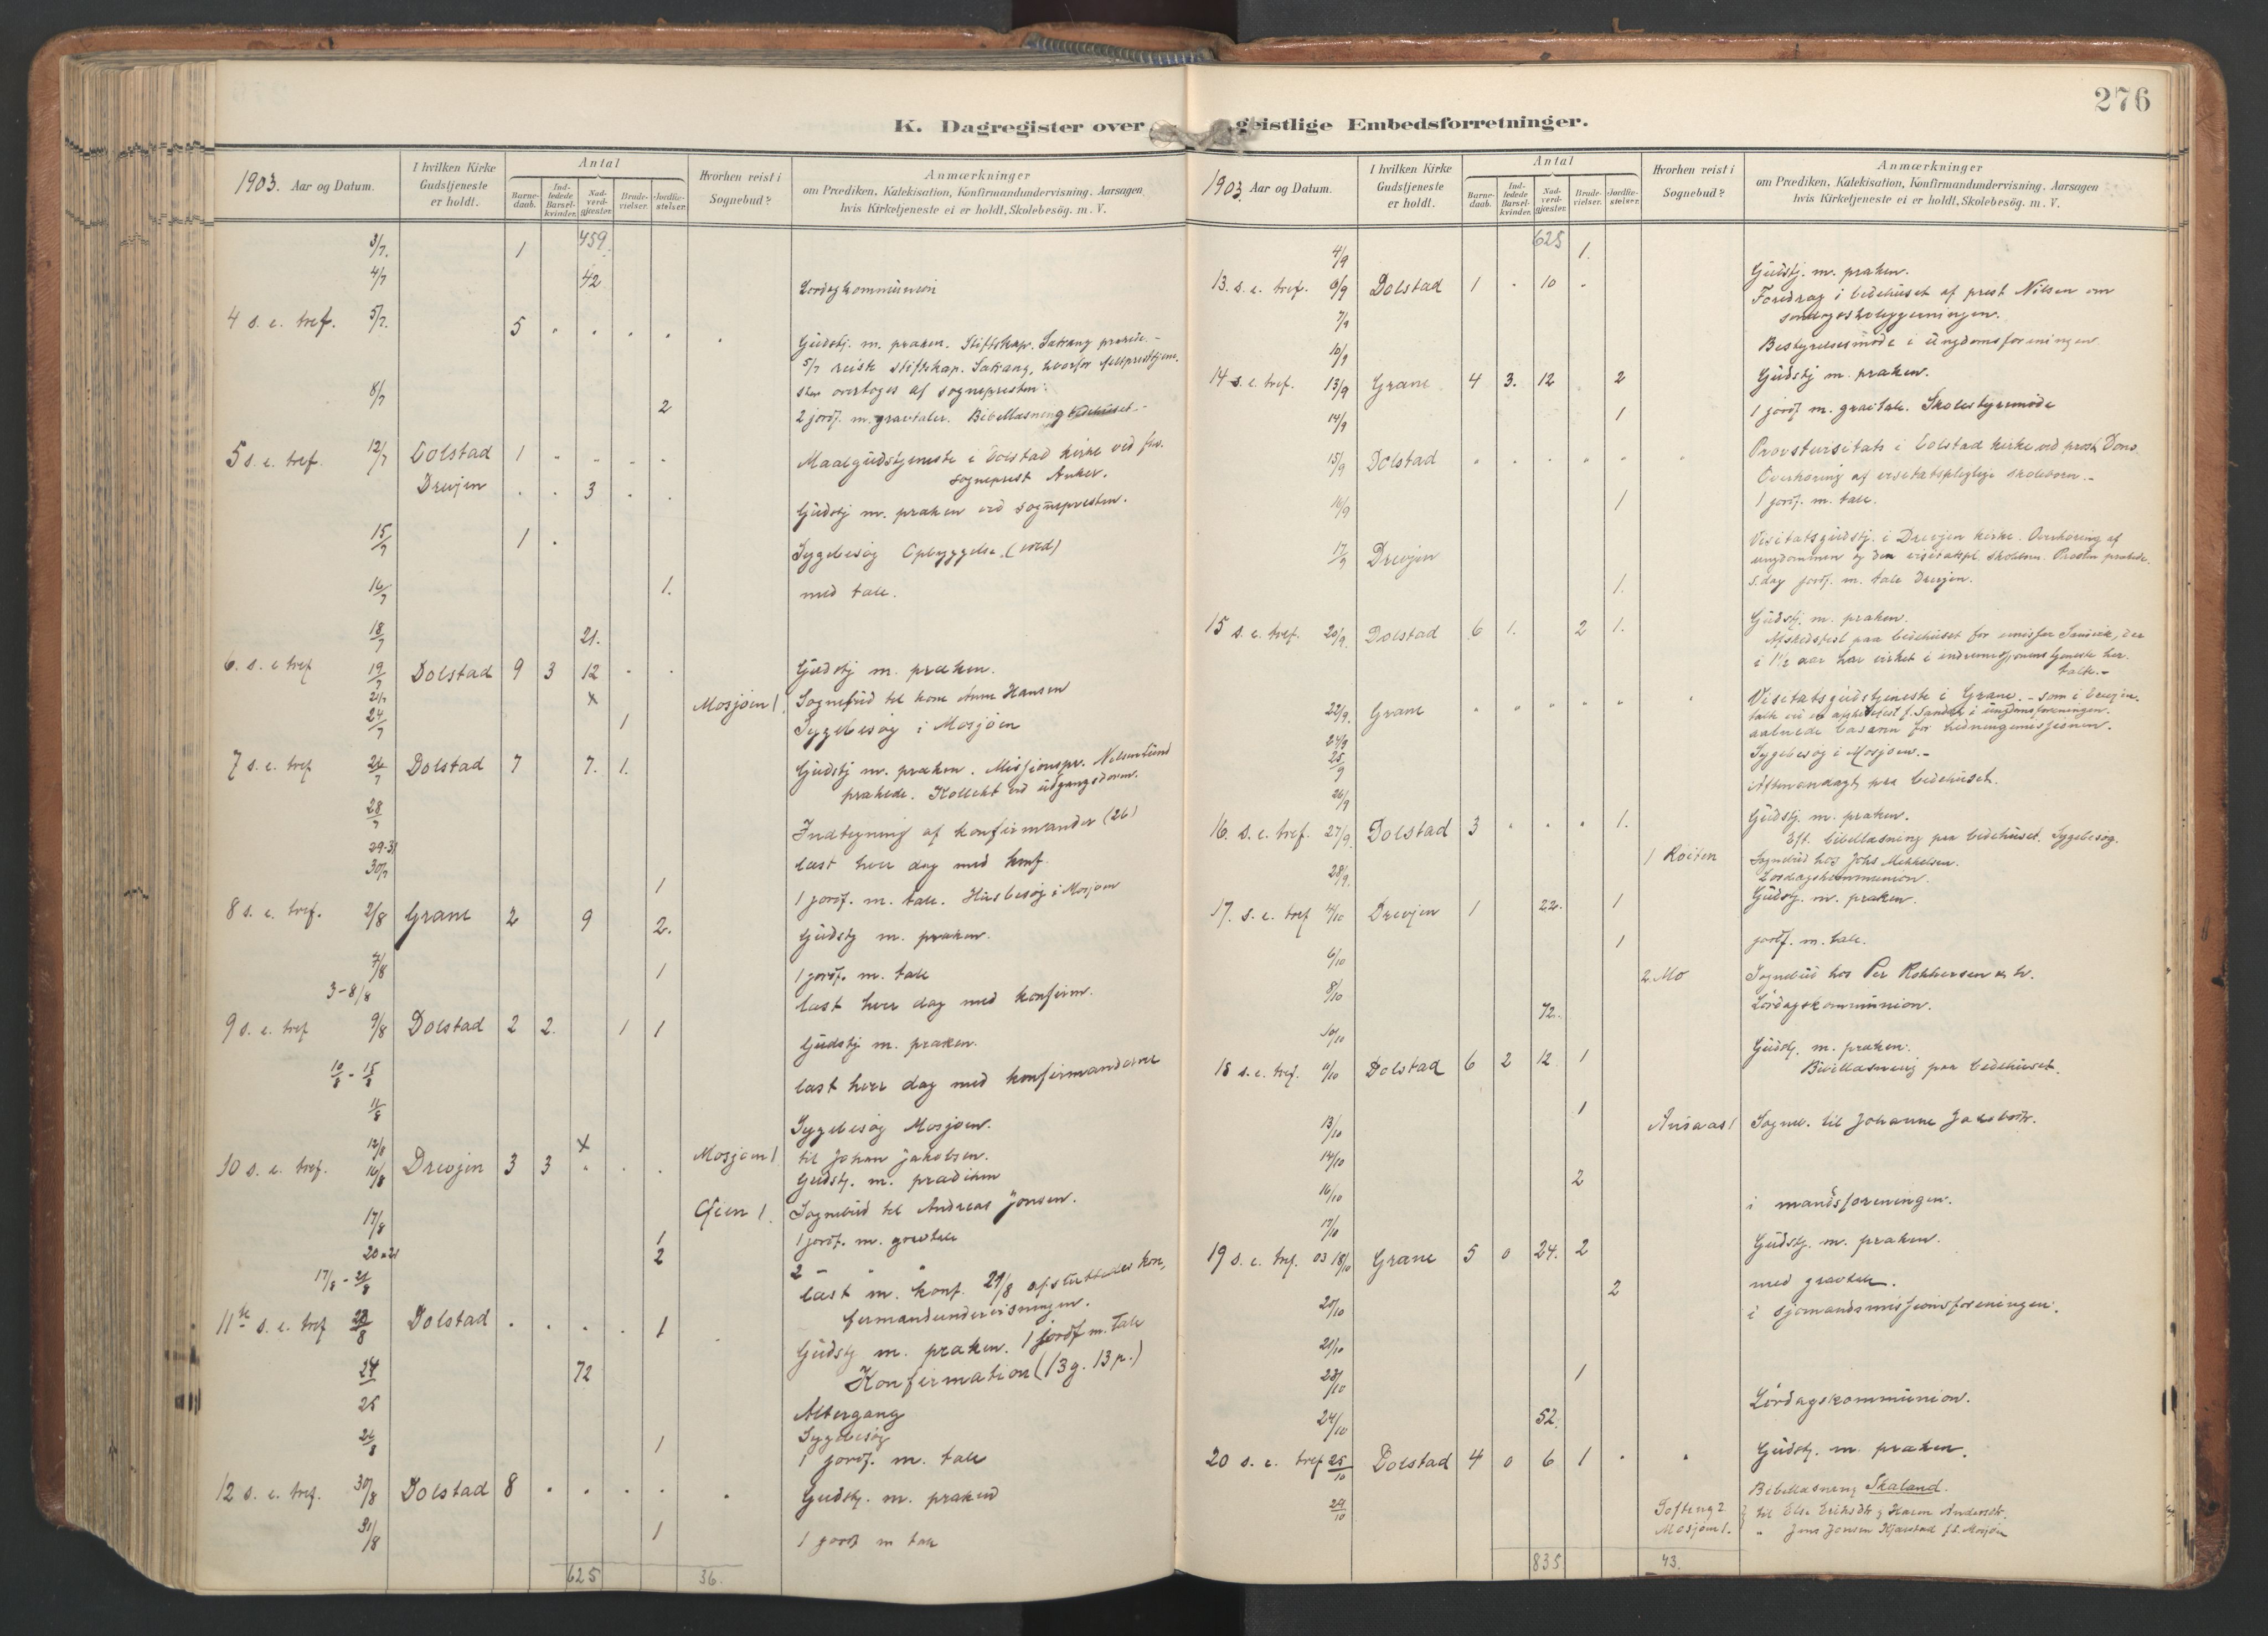 276
K. Dagregister over geistlige Embedsforretninger.
1903. Aar og Datum.
I hvilken Kirke Gudstjeneste er holdt.
Antal
Barnedaab.
Indledede Barselkvinder.
Nadverdgjæster.
Brudevielser.
Jordfæstelser.
Hvorhen reist i Sognebud?
Anmærkninger
om Prædiken, Katekisation, Konfirmandundervisning. Aarsagen
hvis Kirketjeneste ei er holdt, Skolebesøg. m. V.
3/7. 1 459.
4/7 42 Lørdagkommunion
4 s. e. tref. 5/7. 5 " . . . . . Gudstj. m. præken. Stiftskap. Satrang præked.-
5/7 reiste stiftskap. Satrang, hvorfor
overtoges af sognepresten.
8/7 2 2 jordf. m. gravtaler. Bibellæsning bedehuset-
5 s. e. tref. 12/7 Dolstad 1 " " " . Maalgudstjeneste i Dolstad kirke ved fhv.
sogneprest Anker.
Drevjen . . 3 . . Gudstj m. præken ved sognepresten.
15/7 1 . Sygebesøg Opbyggelse.
16/7 1. med tale.
18/7 21.
6. s. e tref 19/7 Dolstad 9 3 12 . . Gudstj m. præken.
21/7 x Mosjøen 1. Sognebud til kone Anne Hansen
24/7 1 Sygebesøg i Mosjøen
7 s. e. tref 26/7 Dolstad 7 7. 1. Gudstj m. præken. Missjonspr. Nilsenlund
prækede. Kollekt ved udgangsdøren.
28/7 Indtegning af konfirmander (26)
29-31 læst hver dag med konf.
30/7 1 1 jordf. m. tale. Husbesøg i Mosjøen
8 s. e. tref. 2/8 Grane 2 9 2. Gudstj m. præken.
7/8 1 1 jordf. m. tale
3-8/8 læst hver dag med konfirm.
9 s. e. tref 9/8 Dolstad 2 2. 1 1 Gudstj m. præken.
10/8 - 15/8 læst hver dag med konfirmanderne
11/8 Sygebesøg Mosjøen.
12/8 x Mosjøen 1 til Johan Jakobsen.
10 s. e. tref. 16/8 Drevjen 3 3 " . . Gudstj. m. prædiken
17/8 1. Sognebud til Andreas Jonsen.
1 1 jordf. m. gravtale
20 & 21 2 2 - " "
17/8 - 21/8 læst m. konf. 21/8 afsluttedes kon,
firmandundervisningen.
11te s. e. tref 23/8 Dolstad . . . . 1 Gudstj m. præken. 1 jordf m. tale
Konfirmation (13 g. 13 p.)
24 72 Altergang
25 Sygebesøg
26/8 1 1 jordf. m. tale
12 s. e. tref. 30/8 Dolstad 8 . . . . . Gudstj. m. præken
31/8 1 1 jordf m tale
625 36.
1903. Aar og Datum.
I hvilken Kirke Gudstjeneste er holdt.
Antal
Barnedaab.
Indledede Barselkvinder.
Nadverdgjæster.
Brudevielser.
Jordfæstelser.
Hvorhen reist i Sognebud?
Anmærkninger
om Prædiken, Katekisation, Konfirmandundervisning. Aarsagen
hvis Kirketjeneste ei er holdt, Skolebesøg. m. V.
4/9 625 1.
13. s. e. tref. 6/9 Dolstad 1 . 10 . Gudstj. m. præken.
7/9 Foredrag i bedehuset af prest Nilsen om
10/9 Bestyrelsesmøde i ungdomsforeningen
14 s. e. tref. 13/9 Grane 4 3. 12 2 Gudstj m. præken.
14/9 1 1 jordf m. gravtale. Skolestyremøde
15/9 Dolstad " . . " " " Provstevisitats i Dolstad kirke ved prost Dons.
Overhøring af visitatspligtige skolebørn.-
16/9 1 1 jordf. m. tale.
17/9 Drevjen Visitatsgudstj. i Drevjen kirke. Overhøring af
ungdommen og den visitatspl. skolebørn. Prosten prækede.
1. s. dag jordf. m. tale Drevjen.
15 s. e. tref. 20/9. Dolstad 6 1. 2 1. Gudstj. m. præken.
Afskedsfest paa bedehuset for emisær Sandvik, der
i 1½ aar har virket i indremissjonens tjeneste her.
talte.-
22/9. Grane " " " " " " Visitatsgudstjeneste i Grane. - som i Drevjen.
24/9 aabnede basaren for hedningemissjonen.
25/9 Sygebesøg i Mosjøen.-
26/9 Aftenandagt paa bedehuset.
16. s. e. tref. 27/9. Dolstad 3 " . . 1. Gudstj. m. præken.
Eft. bibellæsning paa bedehuset. Sygebesøg.
28/9. 1 Røiten Sognebud hos Johs Mikkelsen.
Lørdagskommunion.
17. s. e. tref 4/10 Drevjen 1 22. 1 Gudstj. m. præken.
6/10 1 jordf. m. tale.
8/10 2. Mo Sognebud hos Per
10/10 72. Lørdagskommunion.
18 s. e. tref. 11/10 Dolstad 6 2 12. 1 Gudstj. m. præken.
Bibellæsning paa bedehuset.
13/10 1
14/10 1 Sogneb. til Johanne Jakobsdtr.
16/10 2
17/10 i mandsforeningen.
19 s. e. tref. 03 18/10 Grane 5 0 24. 2 Gudstj. m. præken.
20/10 2 med gravtale.
21/10 i sjømandsmissjonsforeningen.
23/10 1
24/10 52. Lørdagskommunion.
20 s. e. tref 25/10 Dolstad 4 0 6 1 . . Gudstj. m. præken.
Bibellæsning Skaland.
29/10 2 til Else Eriksdtr, Karen Andersdtr.
Mosjøen 1. " Jens Jonsen Kjærstad f.t. Mosjøen
835 43.